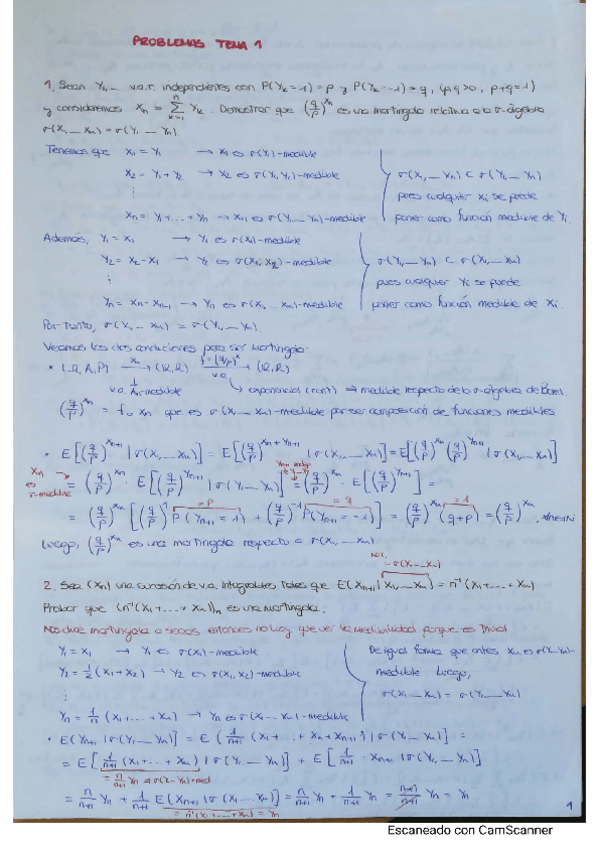 PROBLEMAS TEMA 1
1. Sean Y₁,... v.a.r. independientes con P(Yₖ=1)=p y P(Yₖ=-1)=q, (p,q>0, p+q=1)
y consideremos Xₙ = Σₖ₌₁ⁿ Yₖ. Demostrar que (q/p)^Xₙ es una martingala relativa a la σ-álgebra
σ(X₁,...Xₙ)=σ(Y₁,...Yₙ).
Tenemos que X₁ = Y₁ → X₁ es σ(Y₁)-medible
X₂ = Y₁+Y₂ → X₂ es σ(Y₁,Y₂)-medible
⋮
Xₙ = Y₁+...+Yₙ → Xₙ es σ(Y₁,...Yₙ)-medible
σ(X₁,...Xₙ) ⊂ σ(Y₁,...Yₙ)
pues cualquier Xᵢ se puede
poner como función medible de Yᵢ.
Además, Y₁ = X₁ → Y₁ es σ(X₁)-medible
Y₂ = X₂-X₁ → Y₂ es σ(X₁,X₂)-medible
⋮
Yₙ = Xₙ-Xₙ₋₁ → Yₙ es σ(X₁...Xₙ)-medible
σ(Y₁,...Yₙ) ⊂ σ(X₁,...Xₙ)
pues cualquier Yᵢ se puede
poner como función medible de Xᵢ.
Por tanto, σ(X₁...Xₙ) = σ(Y₁,...Yₙ).
Veamos las dos condiciones para ser martingala:
• (Ω,A,P) →Xₙ (R,R) →f=(q/p)ˣ (R,R)
v.a. Aₙ-medible v.a. → exponencial (cont) ⇒ medible respecto de la σ-álgebra de Borel.
(q/p)^Xₙ = f∘Xₙ que es σ(X₁...Xₙ)-medible por ser composición de funciones medibles
• E[(q/p)^Xₙ₊₁ | σ(X₁,...Xₙ)] = E[(q/p)^(Xₙ+Yₙ₊₁) | σ(X₁,...Xₙ)] = E[(q/p)^Xₙ (q/p)^Yₙ₊₁ | σ(X₁,...Xₙ)]
Xₙ es σ-medible → = (q/p)^Xₙ · E[(q/p)^Yₙ₊₁ | σ(X₁,...Xₙ)] = (q/p)^Xₙ · E[(q/p)^Yₙ₊₁] =
= (q/p)^Xₙ [(q/p)¹ P(Yₙ₊₁=1) + (q/p)⁻¹ P(Yₙ₊₁=-1)] = (q/p)^Xₙ (q+p) = (q/p)^Xₙ, ∀n∈ℕ
=p =q =1
Luego, (q/p)^Xₙ es una martingala respecto a σ(X₁,...Xₙ)
Not. = σ(X₁...Xₙ)
2. Sea (Xₙ) una sucesión de v.a. integrables tales que E(Xₙ₊₁|X₁,...Xₙ) = n⁻¹(X₁+...+Xₙ)
Probar que (n⁻¹(X₁+...+Xₙ))ₙ es una martingala.
Nos dice martingala a secas entonces no hay que ver la medibilidad porque es trivial
Y₁ = X₁ → Y₁ es σ(X₁)-medible
Y₂ = 1/2(X₁+X₂) → Y₂ es σ(X₁,X₂)-medible
⋮
Yₙ = 1/n (X₁+...+Xₙ) → Yₙ es σ(X₁...Xₙ)-medible
De igual forma que antes Xₙ es σ(Y₁...Yₙ)-
medible. Luego,
σ(X₁...Xₙ) = σ(Y₁,...Yₙ)
• E(Yₙ₊₁|σ(Y₁,...Yₙ)] = E(1/n+1 (X₁+...+Xₙ+Xₙ₊₁) | σ(Y₁,...Yₙ)] =
= E[1/n+1 (X₁+...+Xₙ) | σ(Y₁,...Yₙ)] + E[1/n+1 · Xₙ₊₁ | σ(Y₁,...Yₙ)]
= n/n+1 Yₙ ⇒ σ(Y₁...Yₙ)-med
= n/n+1 Yₙ + 1/n+1 E(Xₙ₊₁|σ(X₁...Xₙ)] = n/n+1 Yₙ + 1/n+1 Yₙ = n+1/n+1 Yₙ = Yₙ
= n⁻¹(X₁+...+Xₙ) = Yₙ
1
Escaneado con CamScanner